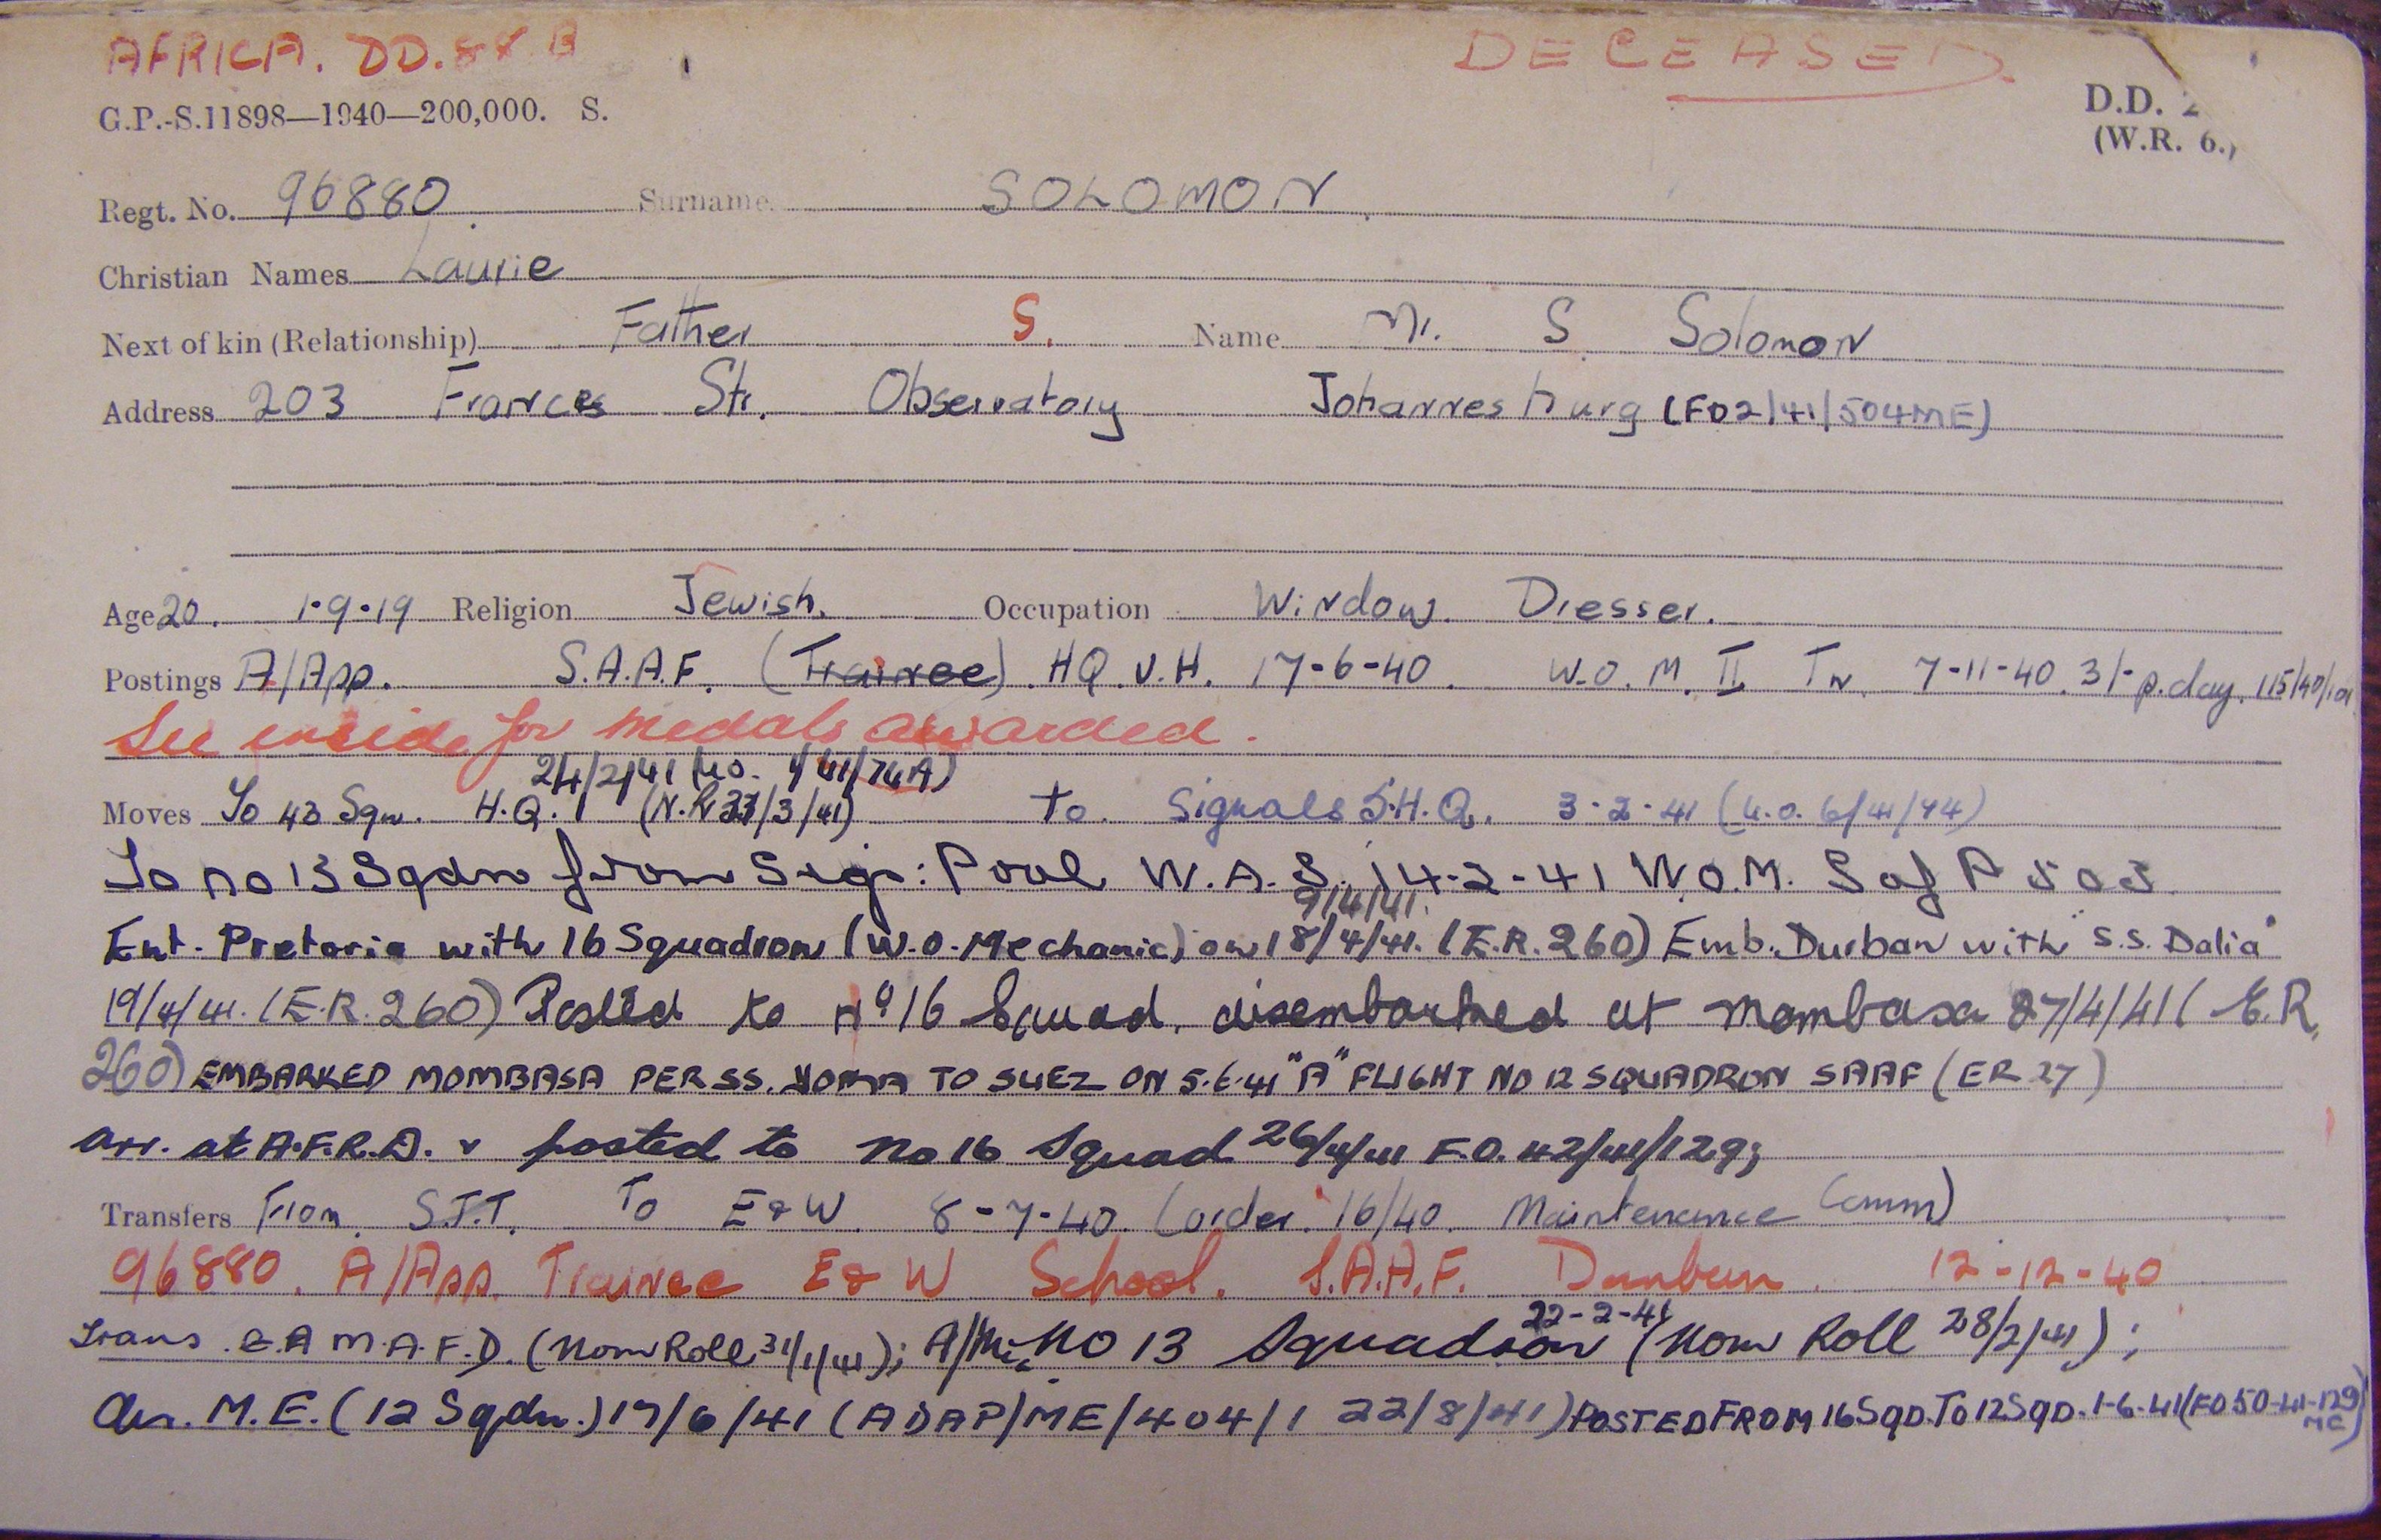 AFRICA. DD. B
DECEASED
G.P.-S.11898—1940—200,000. S.
D.D.
(W.R. 6.)
Regt. No. 96880 Surname SOLOMON
Christian Names Laurie
Next of kin (Relationship) Father S. Name Mr. S Solomon
Address 203 Frances Str. Observatory Johannesburg (FD2/41/504ME)
Age 20. 1-9-19 Religion Jewish. Occupation Window Dresser.
Postings A/App. S.A.A.F. (Trainee) HQ V.H. 17-6-40. W.O.M. II Tn. 7-11-40. 3/- p.day. 115/40/
See inside for medals awarded.
24/2/41
Moves To 43 Sqn. H.Q. to Signals S.H.Q. 3-2-41
To no 13 Sqdn from Sigs: Pool W.A.S. 14-2-41 W.O.M.
9/4/41.
Ent. Pretoria with 16 Squadron (W.O. Mechanic) on 18/4/41. (E.R. 260) Emb. Durban with "S.S. Dalia"
19/4/41. (E.R. 260) Posted to No 16 Squad. disembarked at Mombasa 27/4/41 (E.R.
260) EMBARKED MOMBASA PER SS. TO SUEZ ON 5.6.41 "A" FLIGHT NO 12 SQUADRON SAAF (ER 27)
arr. at A.F.R.D. & posted to No 16 Squad 26/4/41 F.O. 42/41/129;
Transfers From S.T.T. To E & W. 8-7-40. (order. 16/40. Maintenance Comm)
96880. A/App. Trainee E & W School. S.A.A.F. Durban. 12-12-40
22-2-41
Trans. E.A M.A.F.D. (Nom Roll 31/1/41); NO 13 Squadron (Nom Roll 28/2/41);
Arr. M.E. (12 Sqdn.) 17/6/41 (ADAP/ME/404/1 22/8/41) POSTED FROM 16 SQD. TO 12 SQD. 1-6-41 (FO 50-41-129
ME)